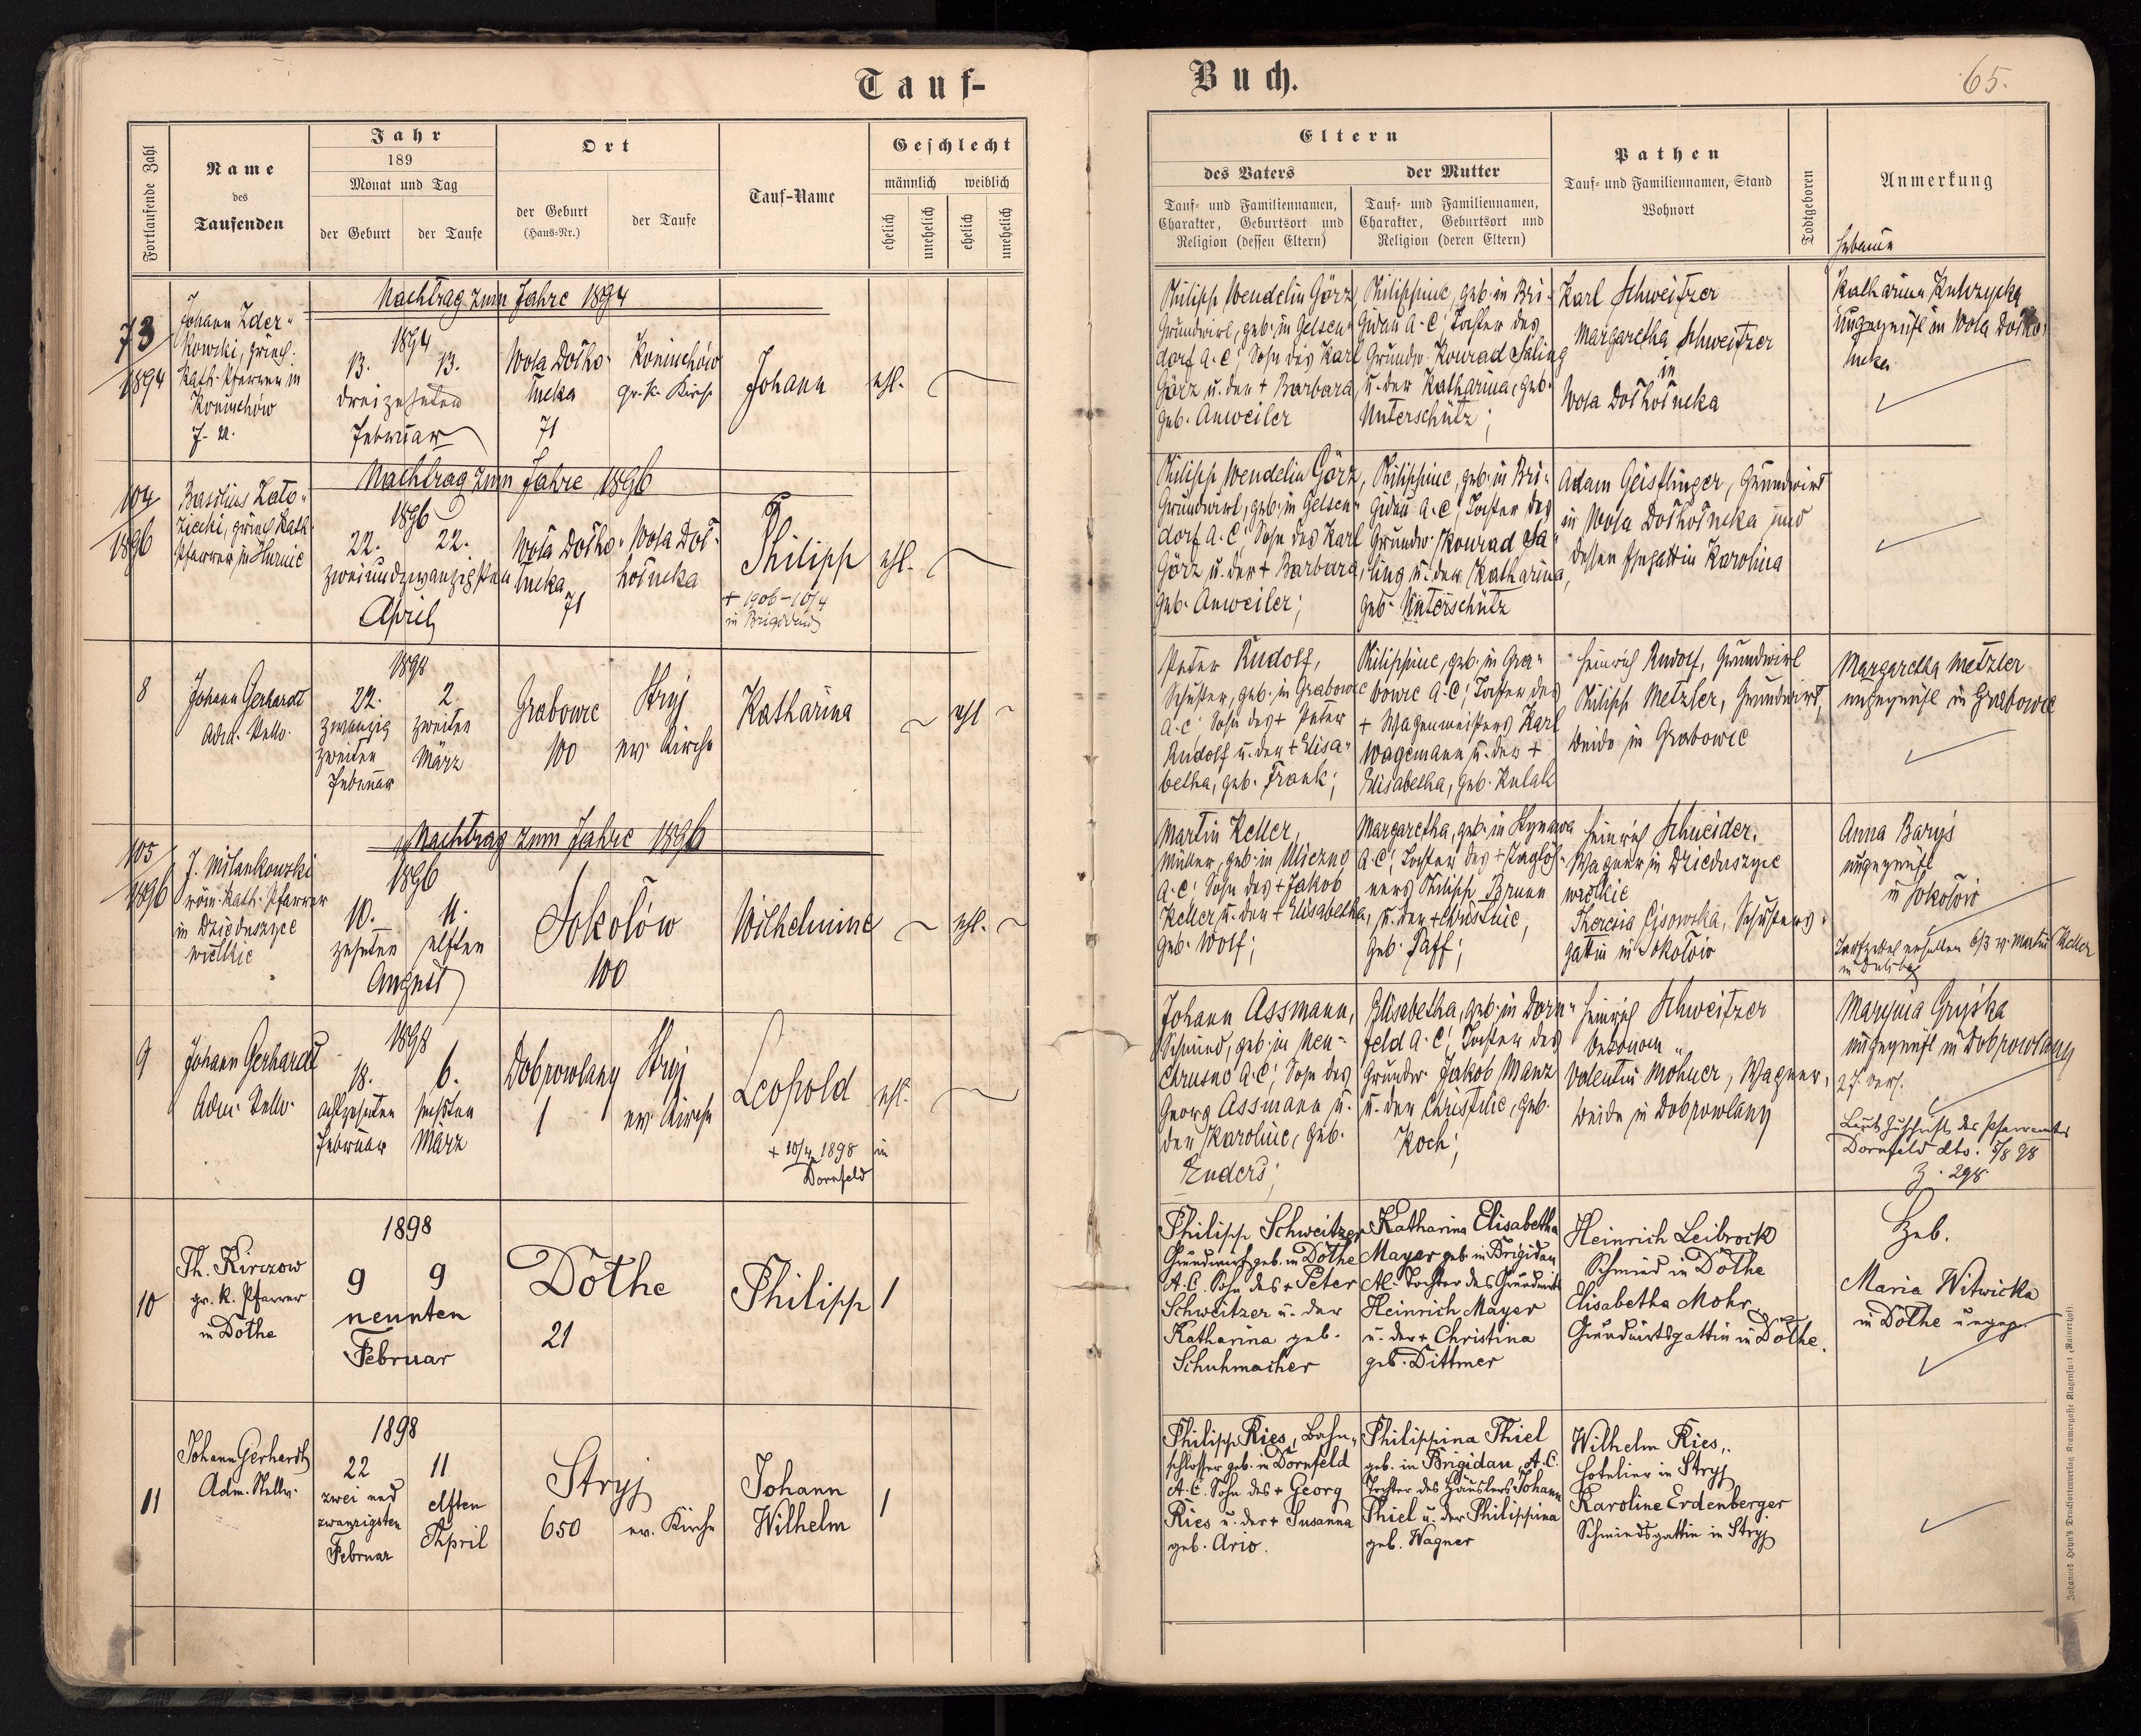 Tauf-
Buch.
65.
Fortlaufende Zahl
Name
des
Taufenden
Jahr
189
Monat und Tag
der Geburt
der Taufe
Ort
der Geburt
(Haus-Nr.)
der Taufe
Tauf-Name
Geschlecht
männlich
weiblich
ehelich
unehelich
ehelich
unehelich
Eltern
des Vaters
der Mutter
Tauf- und Familiennamen,
Charakter, Geburtsort und
Religion (dessen Eltern)
Tauf- und Familiennamen,
Charakter, Geburtsort und
Religion (deren Eltern)
Pathen
Tauf- und Familiennamen, Stand
Wohnort
Todtgeboren
Anmerkung
Hebamme
Nachtrag zum Jahre 1894
73
1894
Johann Zder-
kowski, griech.
kath. Pfarrer in
Koninchów
1894
13. 13.
dreizehnten
Februar
Wola Dołho-
łucka
71
Koninchów
gr. k. Kirche
Johann
ehl.
Philipp Wendelin Görz
Grundwirt, geb. in Gelsen-
dorf A. C. Sohn des Karl
Görz u. der + Barbara,
geb. Anweiler
Philippine, geb. in Bri-
gidau A. C. Tochter des
Grundw. Konrad Saling
u. der Katharina, geb.
Unterschütz;
Karl Schweitzer
Margaretha Schweitzer
in
Wola Dołhołucka
Katharina
ungeprüft in Wola Dołho-
łucka
Nachtrag zum Jahre 1896
104
1896
Basilius Lato-
zicki, griech. kath.
Pfarrer in Hurnie
1896
22. 22.
zweiundzwanzigsten
April
Wola Dołho-
łucka
71
Wola Doł-
hołucka
Philipp
+ 1906-10/4
in Brigidau
ehl.
Philipp Wendelin Görz,
Grundwirt, geb. in Gelsen-
dorf A. C. Sohn des Karl
Görz u. der + Barbara,
geb. Anweiler;
Philippine, geb. in Bri-
gidau A. C., Tochter des
Grundw. Konrad Sa-
ling u. der Katharina,
geb. Unterschütz
Adam Geistlinger, Grundwirt
in Wola Dołhołucka und
dessen Ehegattin Karolina
8
Johann Gerhardt
Adm. Stellv.
1898
22. 2.
zwanzig
zweiten
Februar
zweiten
März
Grabowce
100
Stryj
ev. Kirche
Katharina
ehl
Peter Rudolf,
Schuster, geb. in Grabowce
A. C. Sohn des + Peter
Rudolf u. der + Elisa-
betha, geb. Frank;
Philippine, geb. in Gra-
bowce A. C., Tochter des
+ Wagenmeisters Karl
Wagemann u. der +
Elisabetha, geb. Kulak
Heinrich Rudolf, Grundwirt
Philipp Metzler, Grundwirt,
beide in Grabowce
Margaretha Metzler
ungeprüft in Grabowce
Nachtrag zum Jahre 1896
105
1896
J. Milankowski
röm. kath. Pfarrer
in Dzieduszyce
wielkie
1896
10. 11.
zehnten elften
August
Sokołów
100
Wilhelmine
ehl.
Martin Keller,
Müller, geb. in Uliczno
A. C. Sohn des + Jakob
Keller u. der + Elisabetha,
geb. Wolf;
Margaretha, geb. in Hynawa
A. C., Tochter des + Taglöh-
ners Philipp Brunn
u. der + Christine,
geb. Paff;
Heinrich Schneider,
Wagner in Dzieduszyce
wielkie
Theresia Cisowska, Schusters-
gattin in Sokołów
Anna Baryś
ungeprüft
in Sokołów
Taufzettel erhalten 6/3 v. Martin Keller
9
Johann Gerhardt
Adm. Stellv.
1898
18. 6.
achtzehnten
Februar
sechsten
März
Dobrowlany
1
Stryj
ev. Kirche
Leopold
+ 10/4 1898 in
Dornfeld
ehl.
Johann Assmann,
Schmied, geb. in Neu-
Chrusno A. C., Sohn des
Georg Assmann u.
der Karoline, geb.
Enders;
Elisabetha, geb. in Dorn-
feld A. C., Tochter des
Grundw. Jakob Manz
u. der Christine, geb.
Koch;
Heinrich Schweitzer
Oekonom
Valentin Mohner, Wagner,
beide in Dobrowlany
Maryna Gryśka
ungeprüft in Dobrowlany
Laut Zuschrift des Pfarramtes
Dornfeld dto. 5/8 98
Z. 298.
10
Th. Kirczow
gr. k. Pfarrer
in Dołhe
1898
9 9
neunten
Februar
Dołhe
21
Philipp
1
Philipp Schweitzer
Grundwirt geb. in Dołhe
A. C. Sohn des + Peter
Schweitzer u. der
Katharina geb.
Schuhmacher
Katharina Elisabetha
Mayer geb. in Brigidau
AC. Tochter des Grundwirts
Heinrich Mayer
u. der + Christina
geb. Dittmer
Heinrich Leibrock
Schmied in Dołhe
Elisabetha Mohr,
Grundwirtsgattin in Dołhe.
Heb.
Maria Witwicka
in Dołhe ungepr.
11
Johann Gerhardt
Adm. Stellv.
1898
22 11
zwei und
zwanzigsten
Februar
elften
April
Stryj
650 ev. Kirche
Johann
Wilhelm
1
Philipp Ries, Bahn-
schlosser geb. in Dornfeld
A. C. Sohn des + Georg
Ries u. der + Susanna
geb. Ario.
Philippina Thiel
geb. in Brigidau, A. C.
Tochter des Häuslers Johann
Thiel u. der Philippina
geb. Wagner
Wilhelm Ries,
Hotelier in Stryj
Karoline Erdenberger
Schmiedsgattin in Stryj